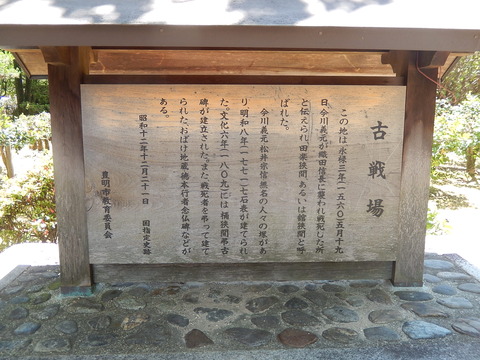 古戦場
この地は、永禄三年(一五六〇)五月十九
日、今川義元が織田信長に襲われ戦死した所
と伝えられ、田楽狭間あるいは舘狭間と呼
ばれた。
今川義元・松井宗信・無名の人々の塚があ
り、明和八年(一七七一)七石表が建てられ
た。文化六年(一八〇九)には、桶狭間弔古
碑が建立された。また、戦死者を弔って建て
られたおばけ地蔵・徳本行者念仏碑などが
ある。
昭和十二年十二月二十一日 国指定史跡
豊明市教育委員会